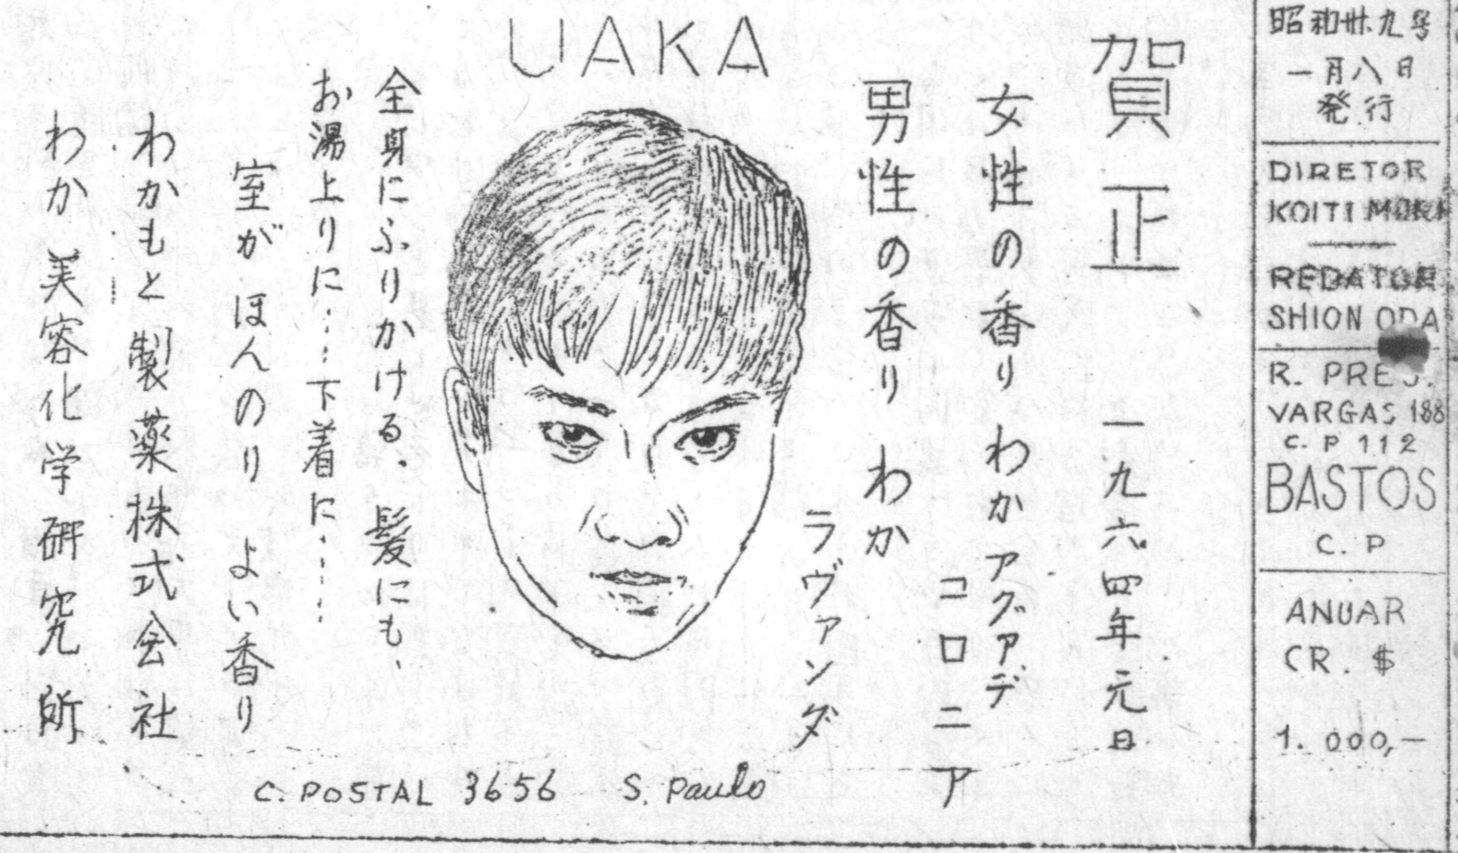 昭和卅九年
一月八日
発行
DIRETOR
KOITI MORI
REDATOR
SHION ODA
R. PRES.
VARGAS 188
C. P 112
BASTOS
C. P
ANUAR
CR. $
1. 000,-
UAKA
賀正
一九六四年元日
女性の香り わかアグァデ
コロニア
男性の香り わか
ラヴァンダ
全身にふりかける、髪にも、
お湯上りに…下着に……
室がほんのりよい香り
わかもと製薬株式会社
わか美容化学研究所
C. POSTAL 3656 S. Paulo